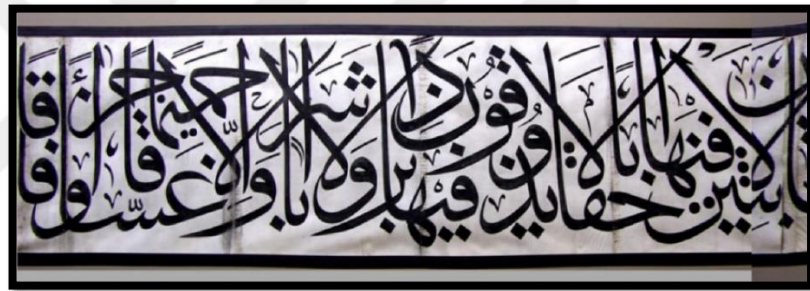 لابثين فيها أحقابا لا يذوقون فيها بردا ولا شرابا إلا حميما وغساقا جزاء وفاقا